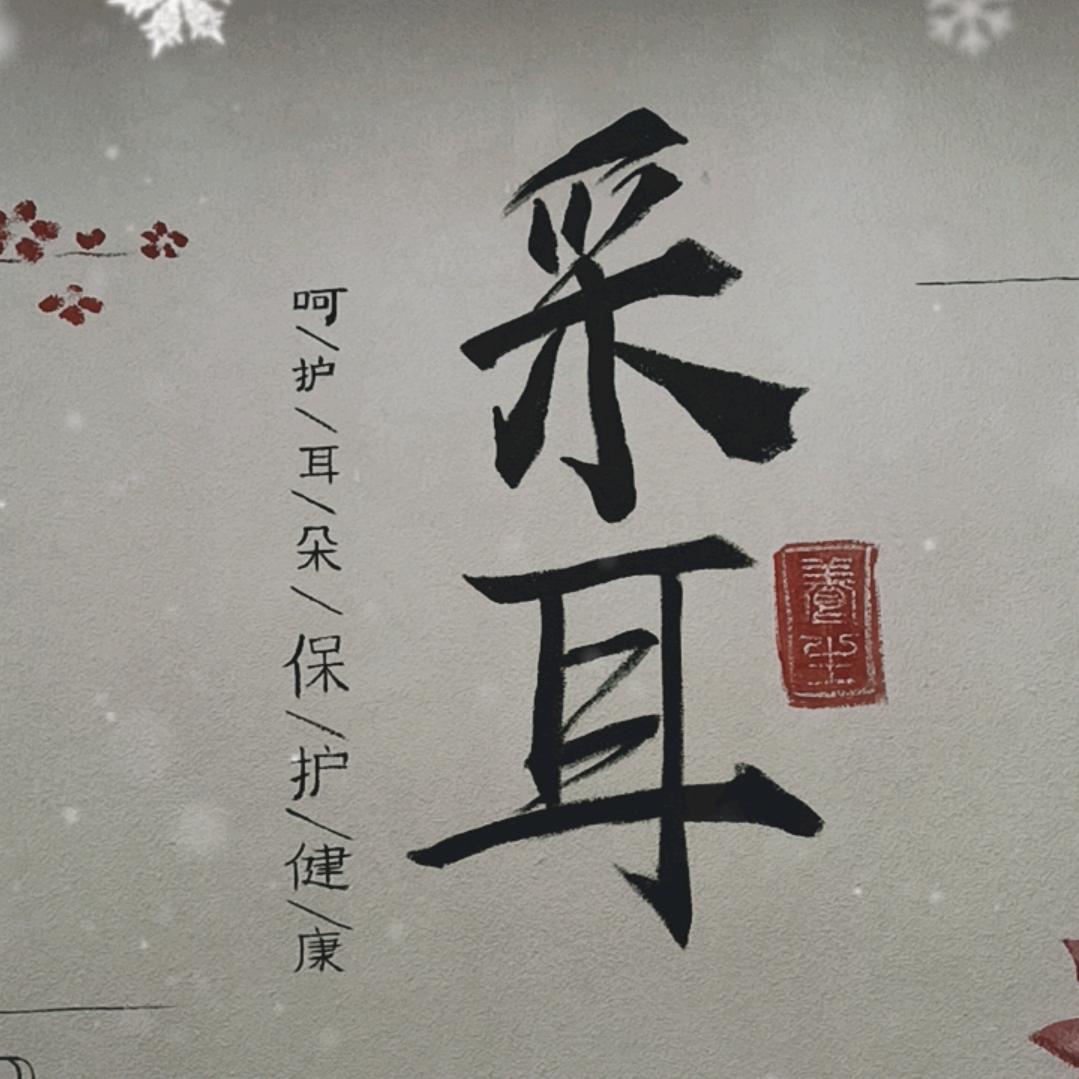 采耳
養生
呵\护\耳\朵\保\护\健\康